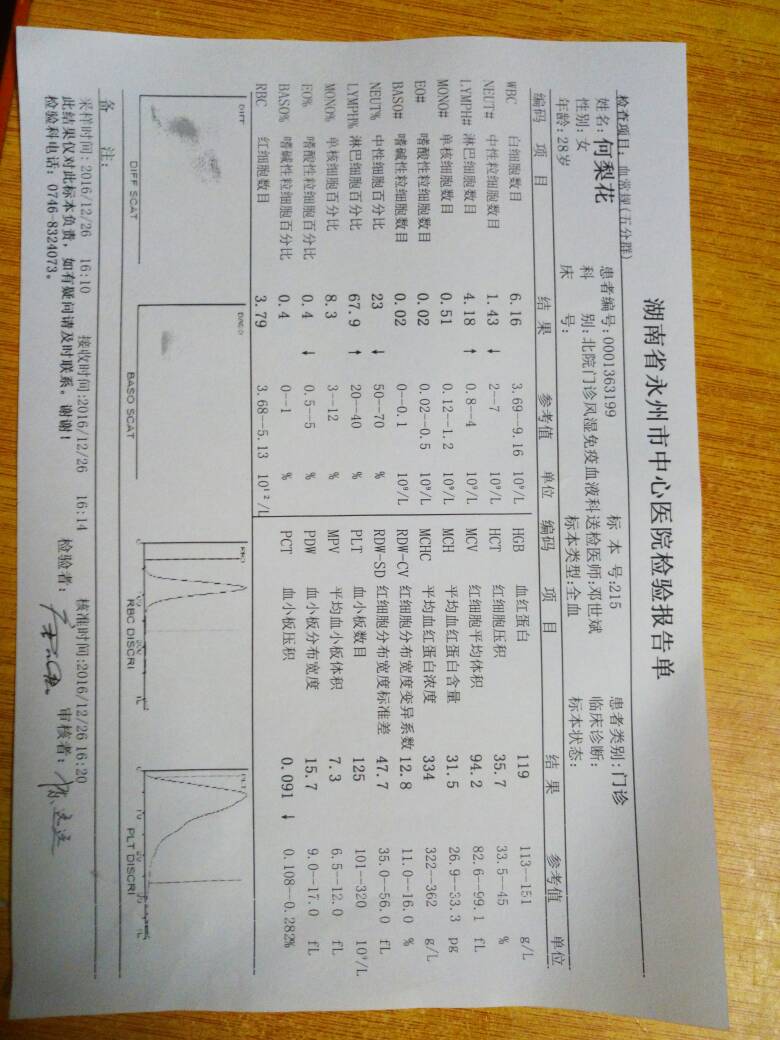 湖南省永州市中心医院检验报告单
检查项目：血常规(五分群)
姓名：何梨花 患者编号：0001363199 标 本 号：215 患者类别：门诊
性别：女 科 别：北院门诊风湿免疫血液科 送检医师：邓世斌 临床诊断：
年龄：28岁 床 号： 标本类型：全血 标本状态：
编码 项 目 结 果 参考值 单位 编码 项 目 结 果 参考值 单位
WBC 白细胞数目 6.16 3.69--9.16 10⁹/L HGB 血红蛋白 119 113--151 g/L
NEUT# 中性粒细胞数目 1.43 ↓ 2--7 10⁹/L HCT 红细胞压积 35.7 33.5--45 %
LYMPH# 淋巴细胞数目 4.18 ↑ 0.8--4 10⁹/L MCV 红细胞平均体积 94.2 82.6--99.1 fL
MONO# 单核细胞数目 0.51 0.12--1.2 10⁹/L MCH 平均血红蛋白含量 31.5 26.9--33.3 pg
EO# 嗜酸性粒细胞数目 0.02 0.02--0.5 10⁹/L MCHC 平均血红蛋白浓度 334 322--362 g/L
BASO# 嗜碱性粒细胞数目 0.02 0--0.1 10⁹/L RDW-CV 红细胞分布宽度变异系数 12.8 11.0--16.0 %
NEUT% 中性细胞百分比 23 ↓ 50--70 % RDW-SD 红细胞分布宽度标准差 47.7 35.0--56.0 fL
LYMPH% 淋巴细胞百分比 67.9 ↑ 20--40 % PLT 血小板数目 125 101--320 10⁹/L
MONO% 单核细胞百分比 8.3 3--12 % MPV 平均血小板体积 7.3 6.5--12.0 fL
EO% 嗜酸性粒细胞百分比 0.4 ↓ 0.5--5 % PDW 血小板分布宽度 15.7 9.0--17.0 fL
BASO% 嗜碱性粒细胞百分比 0.4 0--1 % PCT 血小板压积 0.091 ↓ 0.108--0.282%
RBC 红细胞数目 3.79 3.68--5.13 10¹²/L
DIFF BASO RBC PLT
DIFF SCAT BASO SCAT RBC DISCRI PLT DISCRI
备 注：
采样时间：2016/12/26 16:10 接收时间：2016/12/26 16:14 核准时间：2016/12/26 16:20
此结果仅对此标本负责，如有疑问请及时联系。谢谢！ 检验者： 审核者：
检验科电话：0746-8324073。